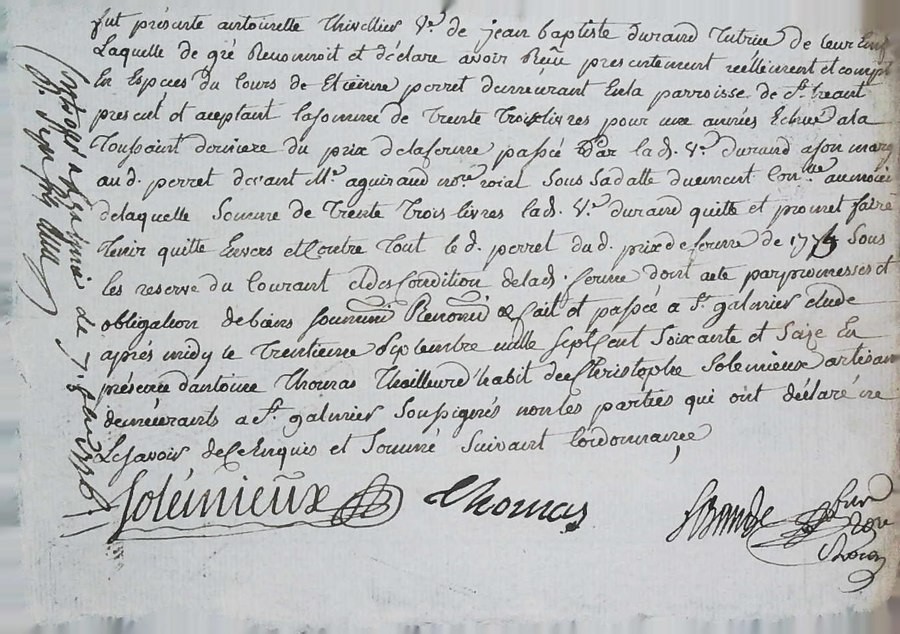 fut présente antoinette Thivellier V.e de jean baptiste durand Tutrice de leur
Laquelle de gré Reconnoit et déclare avoir Reçu presentement reéllement et compt
En Espèces du Cours de Etienne perret demeurant Enla parroisse de St.
present et aceptant lasomme de Trente Trois livres pour une années Echue ala
Toussaint derniere du prix delaferme passée Par lad. V.e durand
au d. perret devant M.e aguiraud no.re roial Sous Sadatte duement au moien
delaquelle Somme de Trente Trois livres lad. V.e durand quitte et promet faire
Tenir quitte Envers et Contre Tout le d. perret du d. prix de ferme de Sous
les reserve du Courant et des Condition delad. ferme dont acte par promesses et
obligation de biens Soumission Renonciation fait et passée a St. galmier Etude
après midy le Trentieme Septembre mille Sept Cent Soixante et Saize En
présence d'antoine Thomas Thailleur d'habit et de Christophe Solemieux artisan
demeurants a St. galmier Soussignés non les parties qui ont déclaré ne
Le Savoir de Ce Enquis et Sommé Suivant L'ordonnance
Solémieux Thomas